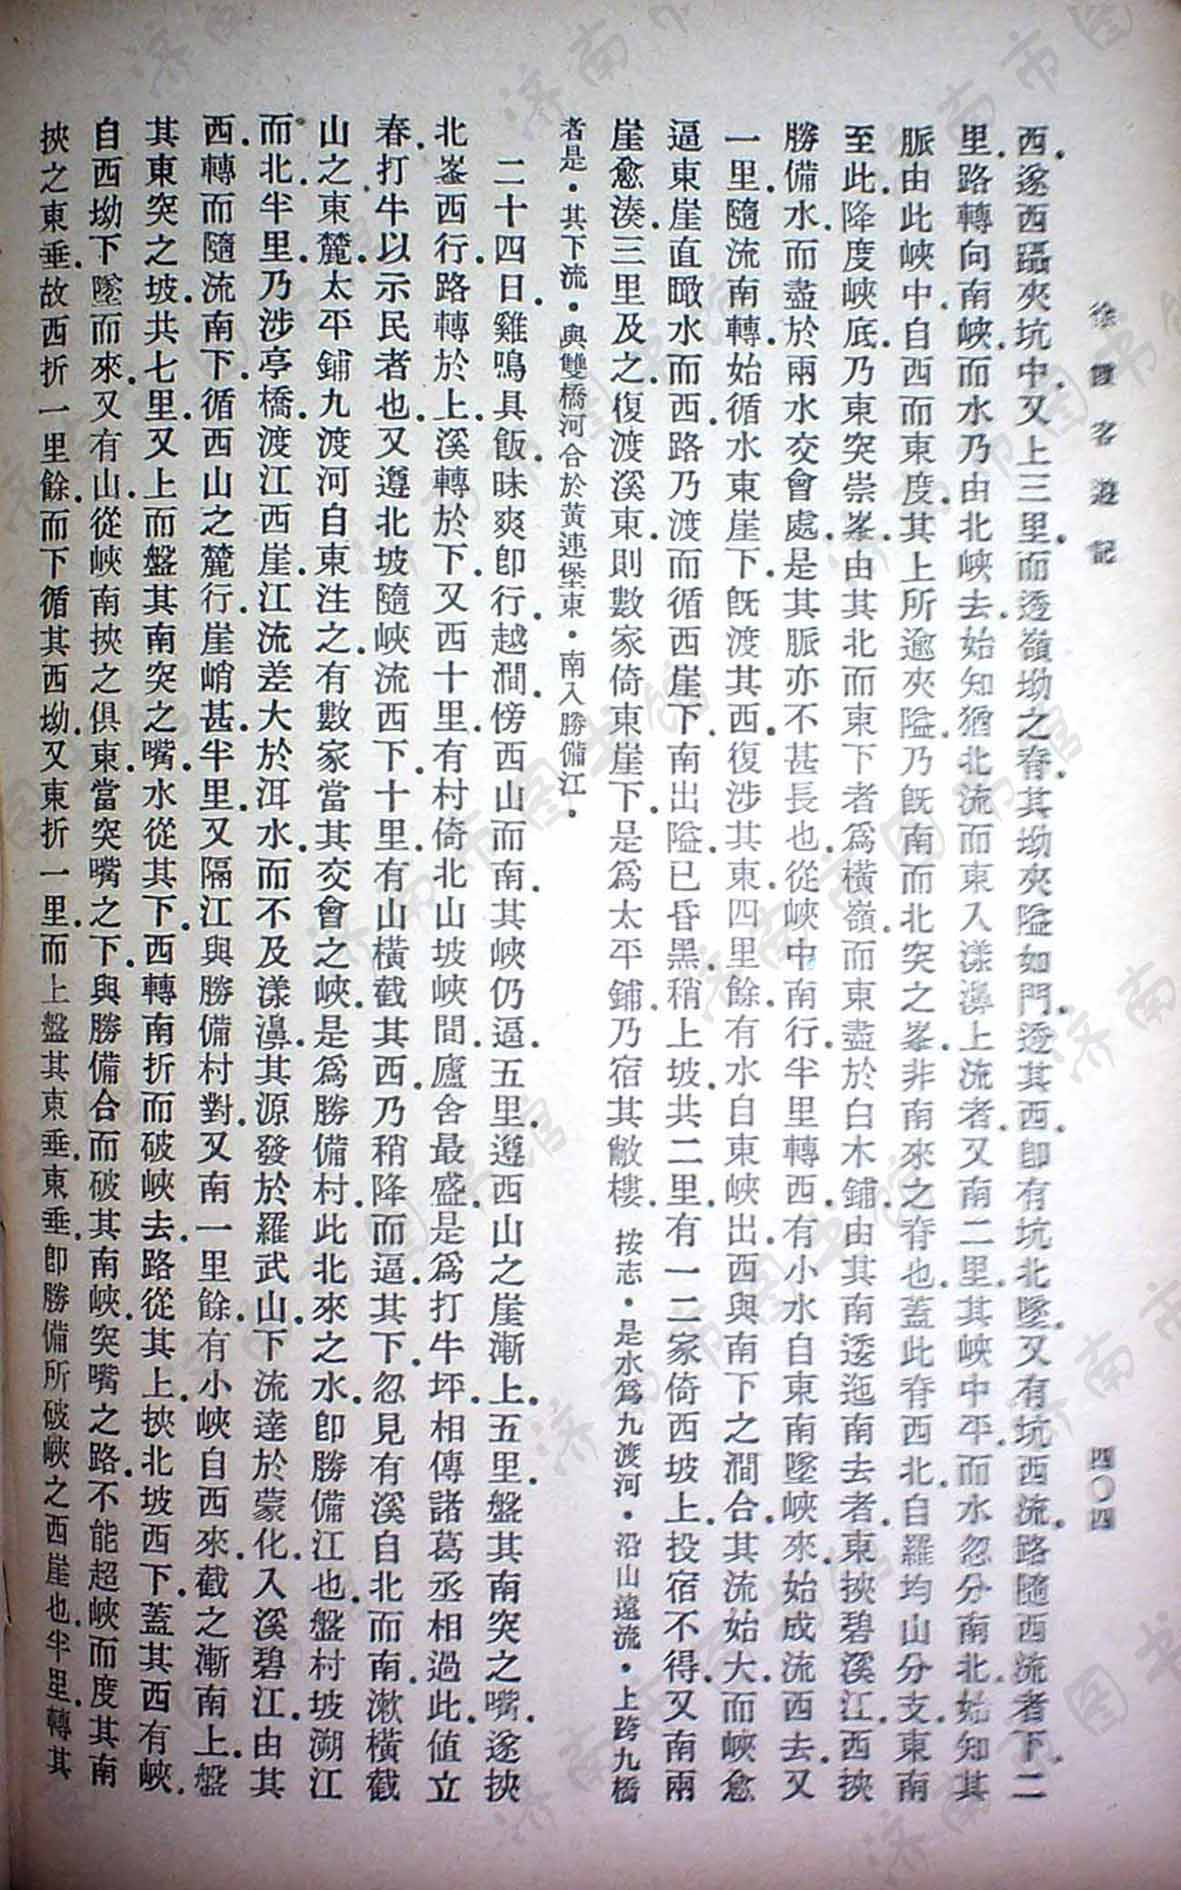 徐霞客遊記
四〇四
西．遂西躡夾坑中．又上三里．而透嶺坳之脊．其坳夾隘如門．透其西．卽有坑北墜．又有坑西流．路隨西流者下．二
里．路轉向南峽．而水乃由北峽去．始知猶北流而東入漾濞上流者．又南二里．其峽中平．而水忽分南北．始知其
脈由此峽中．自西而東度．其上所逾夾隘．乃旣南而北突之峯．非南來之脊也．蓋此脊西北．自羅均山分支．東南
至此．降度峽底．乃東突崇峯．由其北而東下者．爲橫嶺．而東盡於白木鋪．由其南逶迤南去者．東挾碧溪江．西挾
勝備水．而盡於兩水交會處．是其脈亦不甚長也．從峽中南行．半里轉西．有小水自東南墜峽來．始成流西去．又
一里．隨流南轉．始循水東崖下．旣渡其西．復涉其東．四里餘．有水自東峽出．西與南下之澗合．其流始大．而峽愈
逼．東崖直瞰水．而西路乃渡而循西崖下．南出隘．已昏黑．稍上坡．共二里．有一二家倚西坡上．投宿不得．又南兩
崖愈湊．三里及之．復渡溪東．則數家倚東崖下．是爲太平鋪．乃宿其敝樓．按志．是水爲九渡河．沿山遠流．上跨九橋
者是．其下流．與雙橋河合於黃連堡東．南入勝備江．
二十四日．雞鳴具飯．昧爽卽行．越澗．傍西山而南．其峽仍逼．五里．遵西山之崖漸上．五里．盤其南突之嘴．遂挾
北峯西行．路轉於上．溪轉於下．又西十里．有村倚北山坡峽間．廬舍最盛．是爲打牛坪．相傳諸葛丞相過此．値立
春．打牛以示民者也．又遵北坡隨峽流西下．十里．有山橫截其西．乃稍降而逼其下．忽見有溪自北而南．漱橫截
山之東麓．太平鋪九渡河自東注之．有數家當其交會之峽．是爲勝備村．此北來之水．卽勝備江也．盤村坡溯江
而北．半里．乃涉亭橋．渡江西崖．江流差大於洱水．而不及漾濞．其源發於羅武山．下流達於蒙化．入溪碧江．由其
西轉而隨流南下．循西山之麓行．崖峭甚．半里．又隔江與勝備村對．又南一里餘．有小峽自西來．截之漸南上．盤
其東突之坡．共七里．又上而盤其南突之嘴．水從其下．西轉南折而破峽去．路從其上．挾北坡西下．蓋其西有峽．
自西坳下墜而來．又有山．從峽南挾之俱東．當突嘴之下．與勝備合而破其南峽．突嘴之路．不能超峽而度其南
挾之東垂．故西折一里餘．而下循其西坳．又東折一里．而上盤其東垂．東垂．卽勝備所破峽之西崖也．半里．轉其